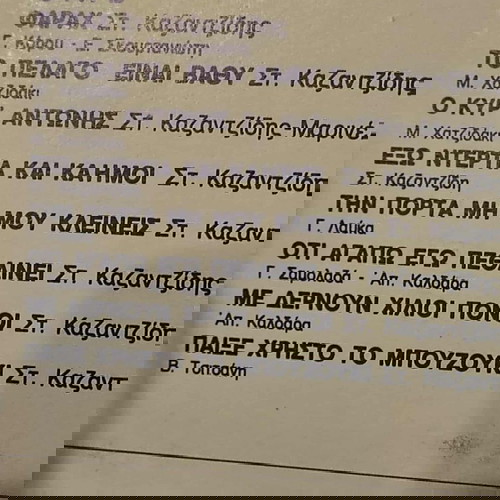 ΦΑΡΑΧ Στ. Καζαντζίδης
ΤΟ ΠΕΛΑΓΟ ΕΙΝΑΙ ΒΑΘΥ Στ. Καζαντζίδης
Μ. Χατζιδάκι
Ο ΚΥΡ ΑΝΤΩΝΗΣ Στ. Καζαντζίδης-Μαρινέ
Μ. Χατζιδάκι
ΕΞΩ ΝΤΕΡΤΙΑ ΚΑΙ ΚΑΗΜΟΙ Στ. Καζαντζίδη
Στ. Καζαντζίδη
ΤΗΝ ΠΟΡΤΑ ΜΗ ΜΟΥ ΚΛΕΙΝΕΙΣ Στ. Καζαντ
Γ. Λαύκα
ΟΤΙ ΑΓΑΠΩ ΕΓΩ ΠΕΘΑΙΝΕΙ Στ. Καζαντζίδης
Γ. Σαμολαδά - Απ. Καλδάρα
ΜΕ ΔΕΡΝΟΥΝ ΧΙΛΙΟΙ ΠΟΝΟΙ Στ. Καζαντζίδη
Απ. Καλδάρα
ΠΑΙΞΕ ΧΡΗΣΤΟ ΤΟ ΜΠΟΥΖΟΥΚΙ Στ. Καζαντ
Β. Τσιτσάνη